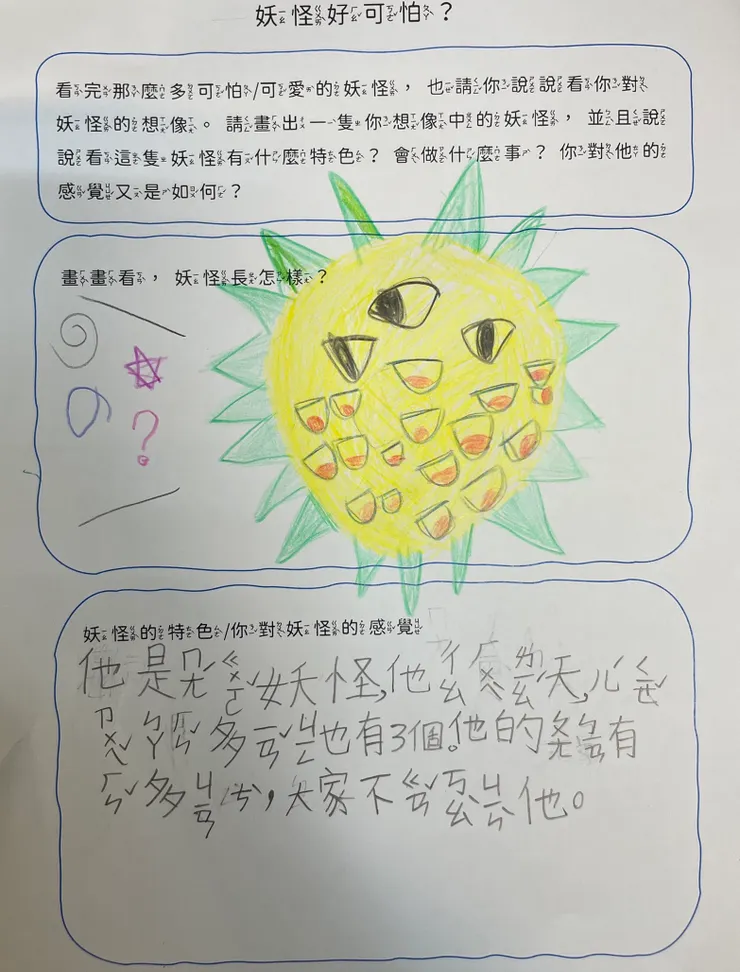 妖怪好可怕？
看完那麼多可怕/可愛的妖怪，也請你說說看你對
妖怪的想像。請畫出一隻你想像中的妖怪，並且說
說看這隻妖怪有什麼特色？會做什麼事？你對他的
感覺又是如何？
畫畫看，妖怪長怎樣？
?
妖怪的特色/你對妖怪的感覺
他是妖怪,他ㄔㄠ ㄏㄨㄟˋ ㄌㄧㄠˊ天,ㄦˊ ㄑㄧㄝˇ
ㄗㄨㄟˇ ㄅㄚ ㄏㄣˇ多ㄧㄢˇ ㄐㄧㄥ也有3個。他的有
ㄏㄣˇ多ㄐㄧㄢ ㄘˋ，大家不ㄍㄢˇ ㄎㄠˋ ㄐㄧㄣˋ他。